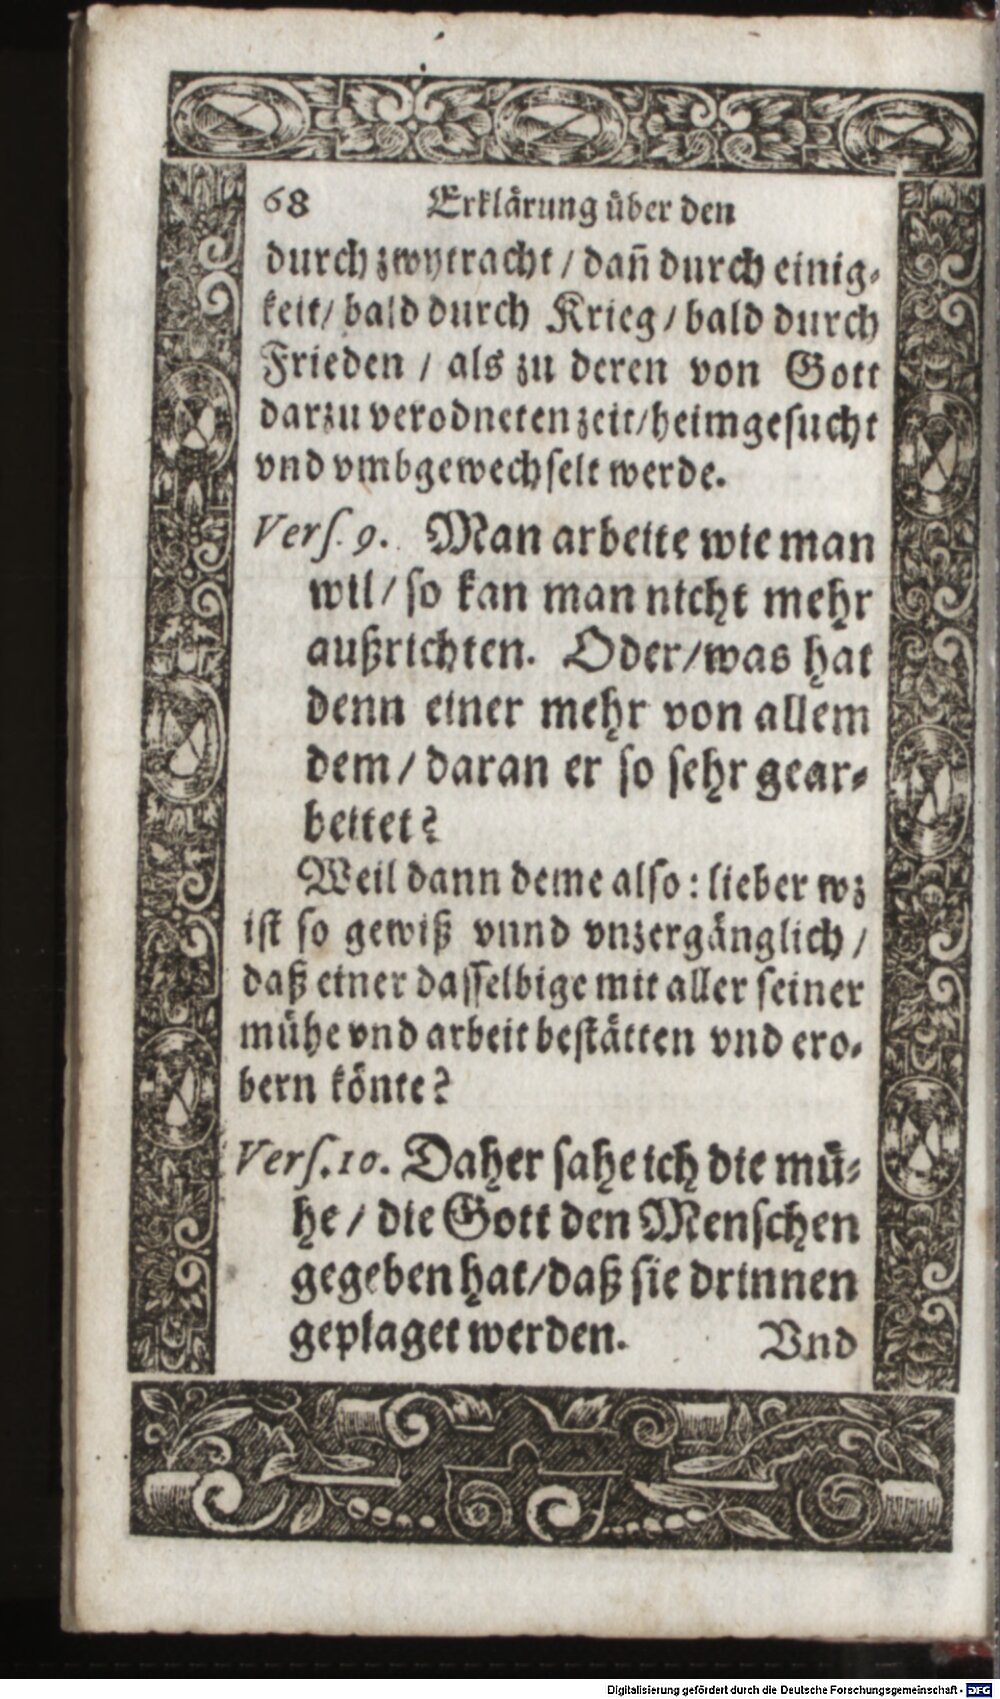 68 Erklärung über den
durch zwytracht / dañ durch einig⸗
keit/ bald durch Krieg / bald durch
Frieden / als zu deren von Gott
darzu verodneten zeit/heimgesucht
vnd vmbgewechselt werde.
Vers. 9. Man arbeite wie man
wil/ so kan man nicht mehr
außrichten. Oder/was hat
denn einer mehr von allem
dem / daran er so sehr gear⸗
beitet?
Weil dann deme also: lieber wz
ist so gewiß vnnd vnzergänglich /
daß einer dasselbige mit aller seiner
mühe vnd arbeit bestätten vnd ero⸗
bern könte?
Vers. 10. Daher sahe ich die mü⸗
he / die Gott den Menschen
gegeben hat/daß sie drinnen
geplaget werden. Vnd
Digitalisierung gefördert durch die Deutsche Forschungsgemeinschaft - DFG